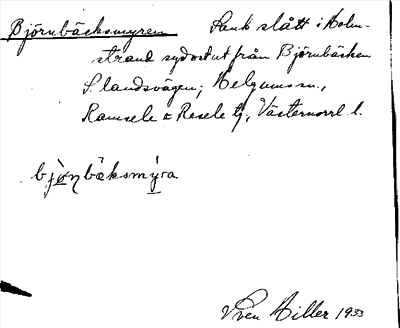 Björnbäcksmyren Sank slått i Holm-
strand sydostut från Björnbäcken
S landsvägen; Helgums sn.,
Ramsele o Resele tg, Västernorrl. l.
bjò̱ŋbäksmy̱ra
Sven Hiller 1933